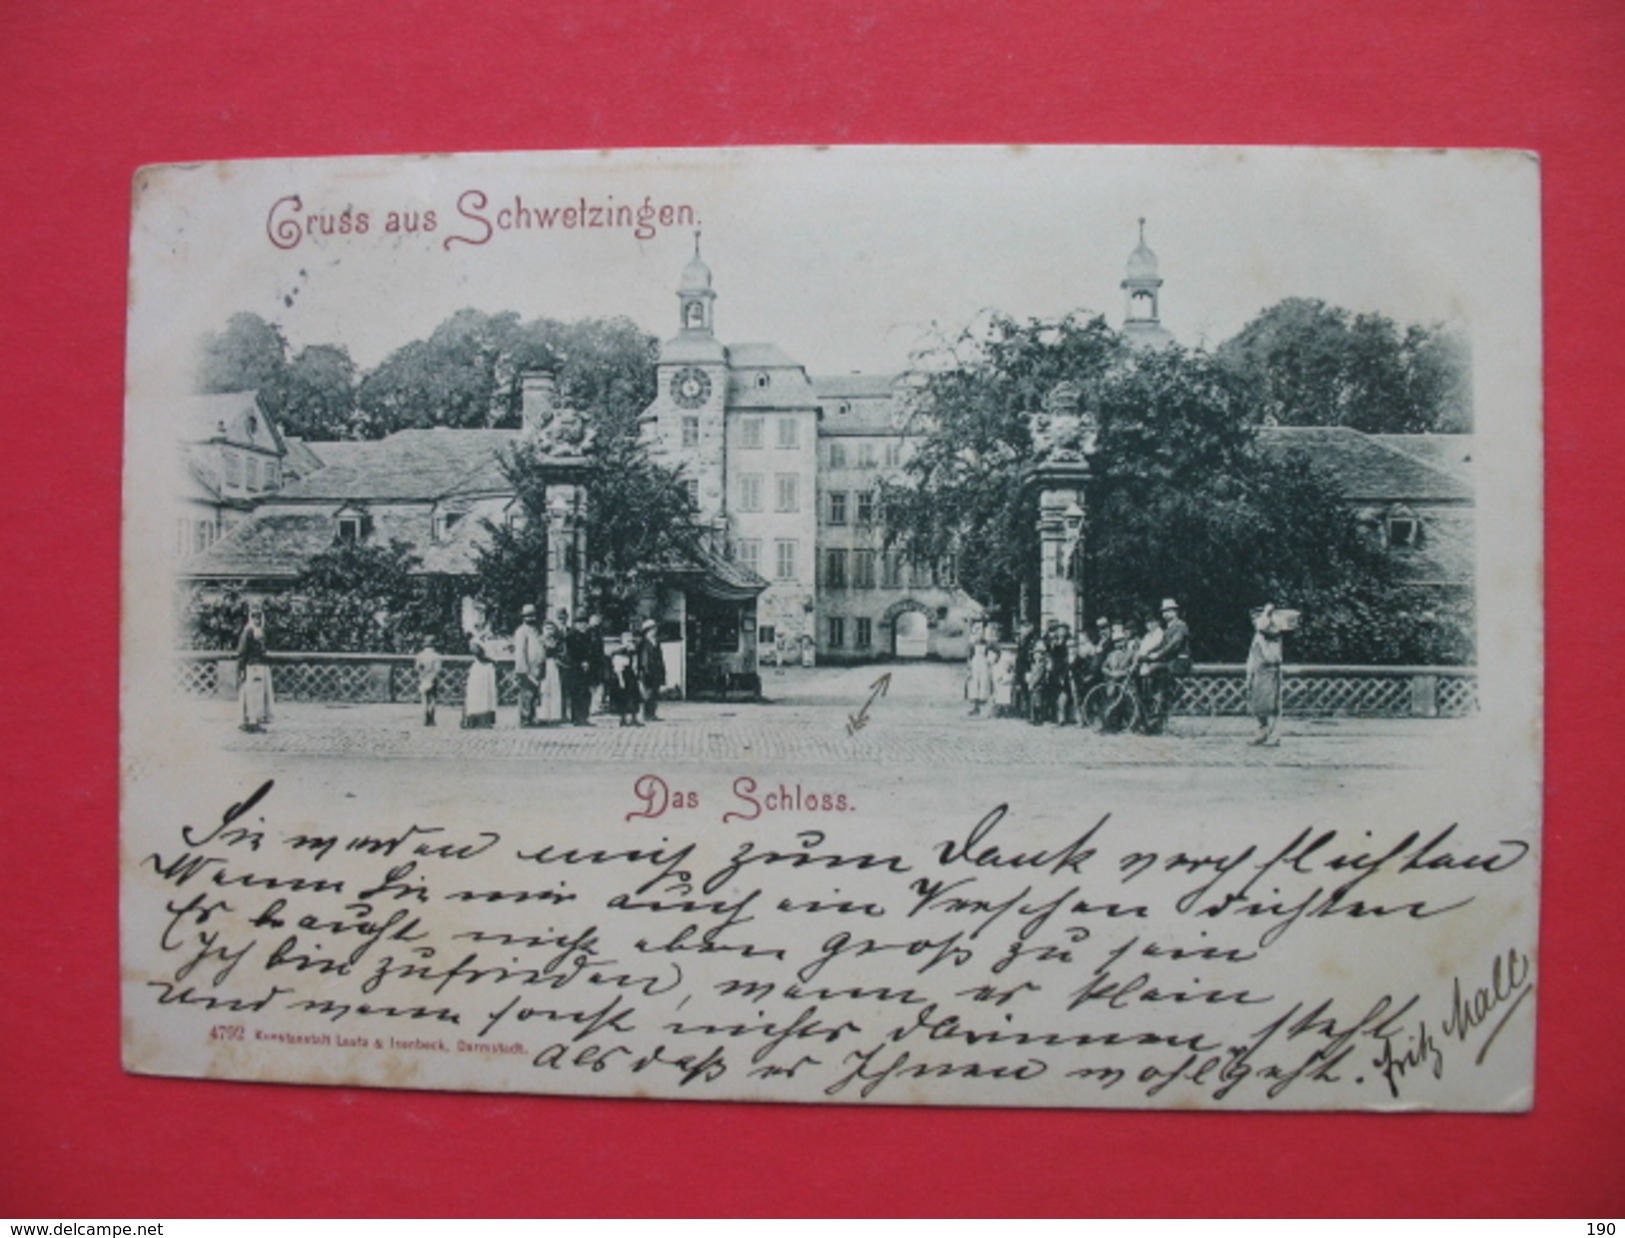 Gruss aus Schwetzingen.
Das Schloss.
Sie werden mich zum Dank verpflichten
Wenn Sie mir auch ein Verschen dichten
Es braucht nicht eben groß zu sein
Ich bin zufrieden, wenn es klein
und wenn sonst nichts darinnen steht
als daß es Ihnen wohlgeht.
Fritz Mall
4792 Kunstanstalt Lautz & Isenbeck, Darmstadt.
www.delcampe.net
matoart
190